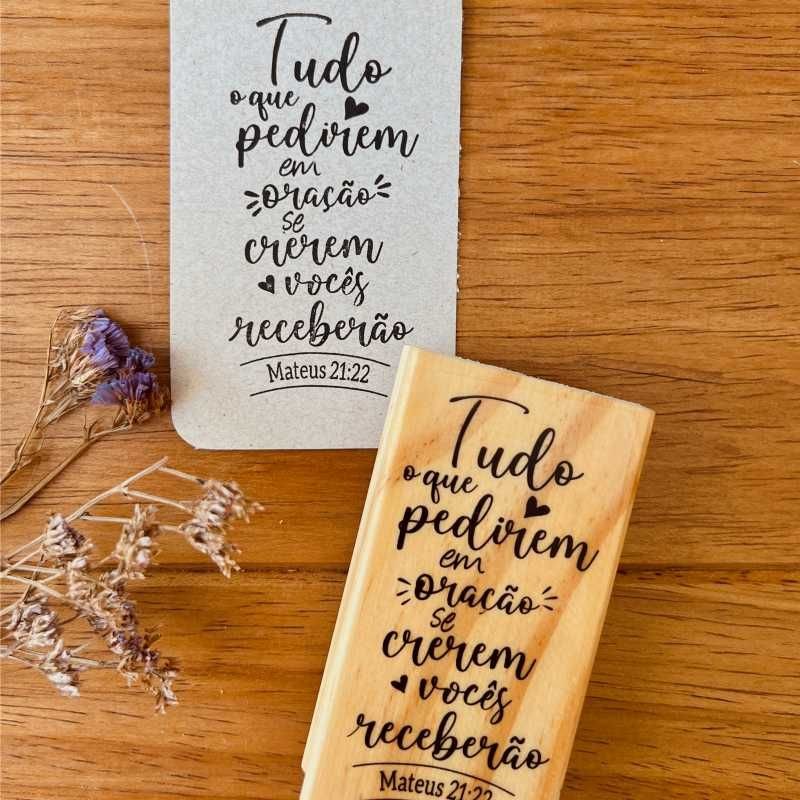 Tudo
o que
pedirem
em
oração
se
crerem
vocês
receberão
Mateus 21:22
Tudo
o que
pedirem
em
oração
se
crerem
vocês
receberão
Mateus 21:22